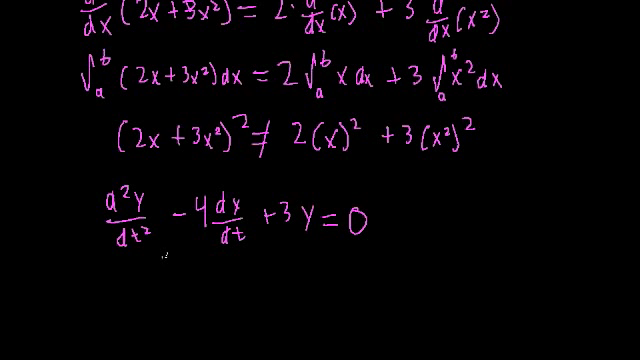 d/dx (2x+3x²) = 2· d/dx (x) + 3 d/dx (x²)
∫ₐᵇ (2x+3x²) dx = 2 ∫ₐᵇ x dx + 3 ∫ₐᵇ x² dx
(2x + 3x²)² ≠ 2(x)² + 3(x²)²
d²y/dt² - 4 dx/dt + 3y = 0